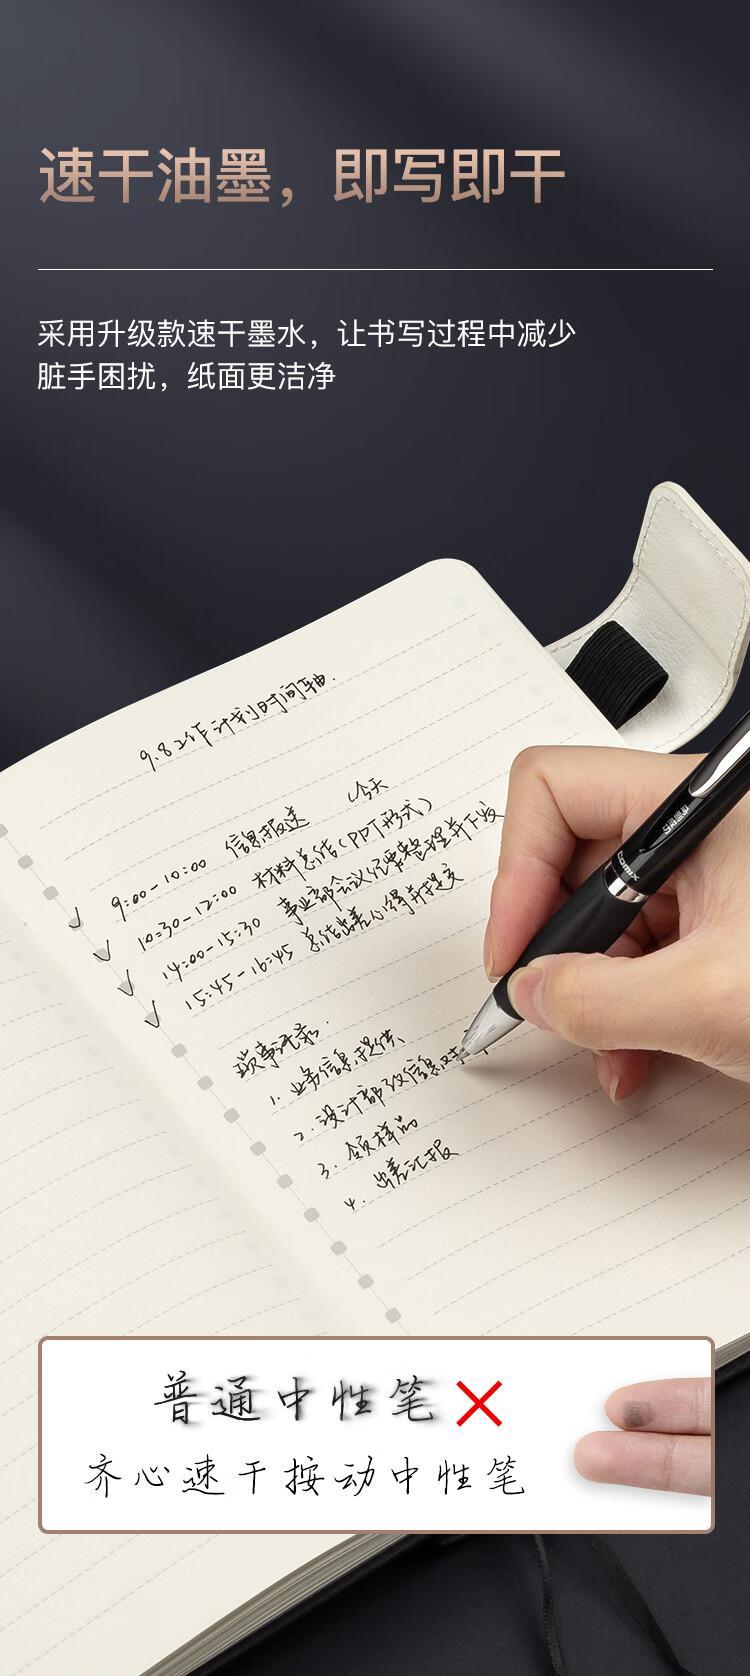 速干油墨，即写即干
采用升级款速干墨水，让书写过程中减少
脏手困扰，纸面更洁净
9.8工作计划时间轴.
今天
9:00-10:00 信息报送
10:30-12:00 材料总结(PPT形式)
14:00-15:30 事业部会议纪要整理并下发
15:45-16:45 总结出差心得并提交
琐事记录.
1. 业务信息提供.
2. 设计部改信息
3. 领样品
4. 出差汇报
Comix
普通中性笔
齐心速干按动中性笔